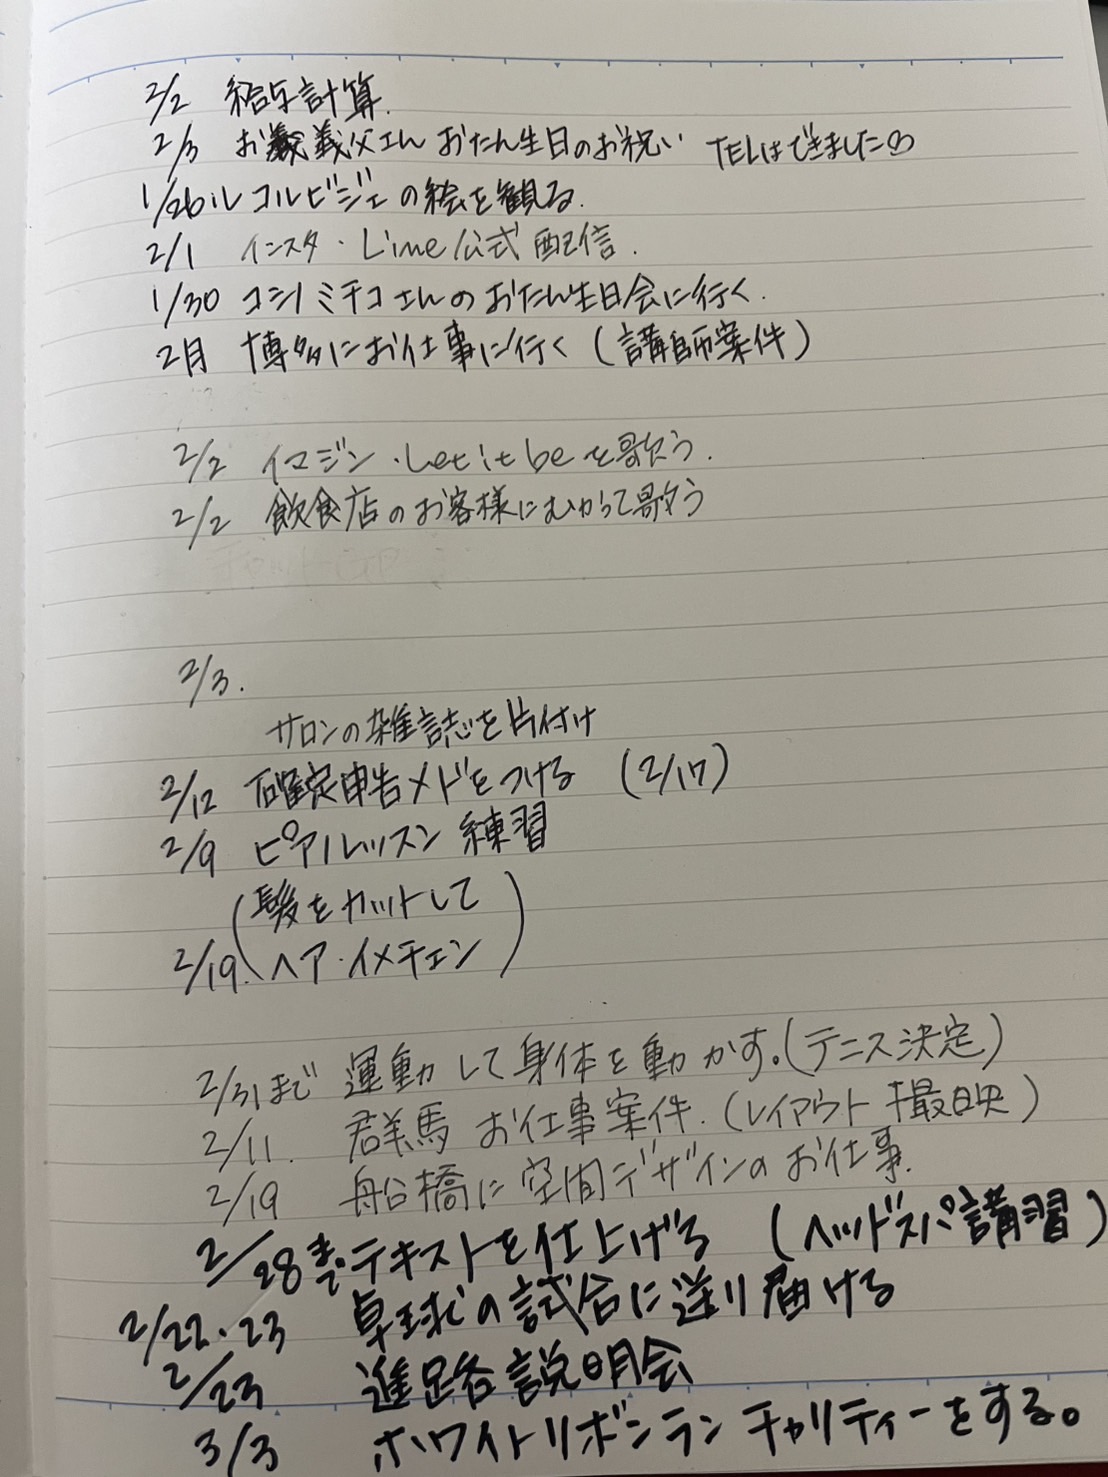 2/2 給与計算.
2/3 お義父さん おたん生日のお祝い TELはできました
1/26 ル コルビジェの絵を観る.
2/1 インスタ・Line公式配信.
1/30 コシノミチコさんのおたん生日会に行く.
2月 博多にお仕事に行く (講師案件)
2/2 イマジン・Let it beを歌う.
2/2 飲食店のお客様にむかって歌う
2/3.
サロンの雑誌を片付け
2/12 確定申告メドをつける (2/17)
2/9 ピアノレッスン 練習
(髪をカットして
2/19. ヘア・イメチェン)
2/31まで 運動して身体を動かす。(テニス決定)
2/11. 群馬 お仕事案件. (レイアウト 撮映)
2/19 船橋に空間デザインのお仕事.
2/28まで テキストを仕上げる (ヘッドスパ講習)
2/22・23 卓球の試合に送り届ける
2/23 進路説明会
3/3 ホワイトリボンラン チャリティーをする。